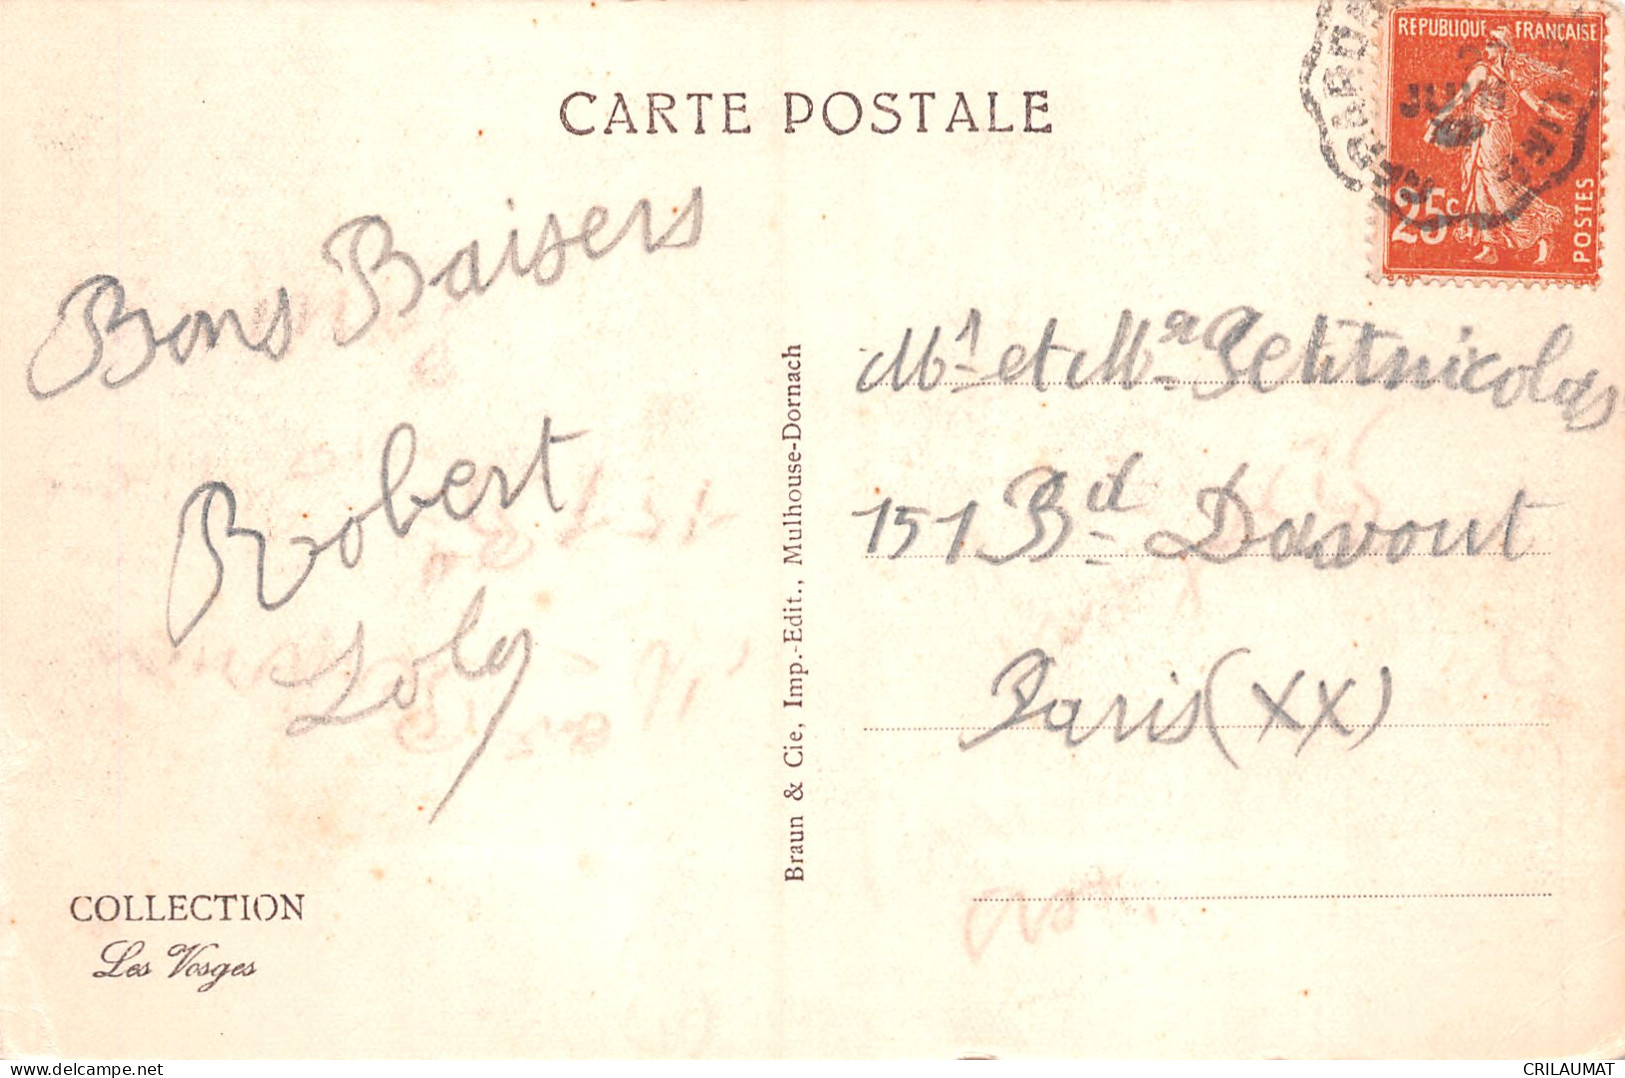 CARTE POSTALE
RÉPUBLIQUE FRANÇAISE
25c
POSTES
JUIN
Bons Baisers
Robert
Loly
Mr et Mme Petitnicolas
151 Bd Davout
Paris (XX)
Braun & Cie, Imp.-Edit., Mulhouse-Dornach
COLLECTION
Les Vosges
CRILAUMAT